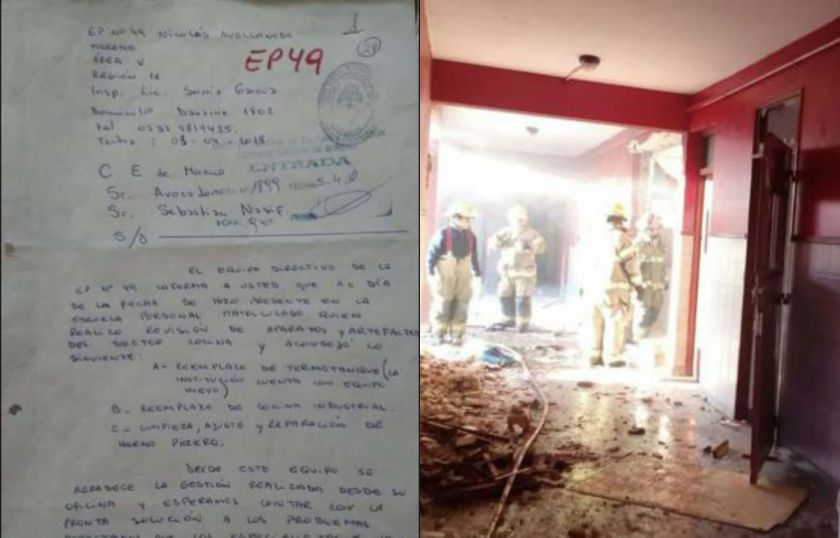 EP Nº 49 Nicolás Avellaneda
MORENO
ÁREA V
REGIÓN IX
EP49
Insp. Lic. Sonia García
Domicilio 1802
tel 0237 4819425.
Fecha : 2018
ENTRADA
C. E de
Sr.
Sr. Sebastián Nasif.
S/D
EL EQUIPO DIRECTIVO DE LA
EP Nº 49 INFORMA A USTED QUE AL DÍA
DE LA FECHA SE HIZO PRESENTE EN LA
ESCUELA PERSONAL MATRICULADO QUIEN
REALIZO REVISIÓN DE APARATOS Y ARTEFACTOS
DEL SECTOR COCINA Y ACONSEJÓ LO
SIGUIENTE:
A- REEMPLAZO DE TERMOTANQUE (LA
INSTITUCIÓN CUENTA CON EQUIPO
NUEVO)
B- REEMPLAZO DE COCINA INDUSTRIAL.
C- LIMPIEZA, AJUSTE Y REPARACIÓN DE
HORNO PIZERO.
DESDE ESTE EQUIPO SE
AGRADECE LA GESTIÓN REALIZADA DESDE SU
OFICINA Y ESPERAMOS CONTAR CON LA
PRONTA SOLUCIÓN A LOS PROBLEMAS